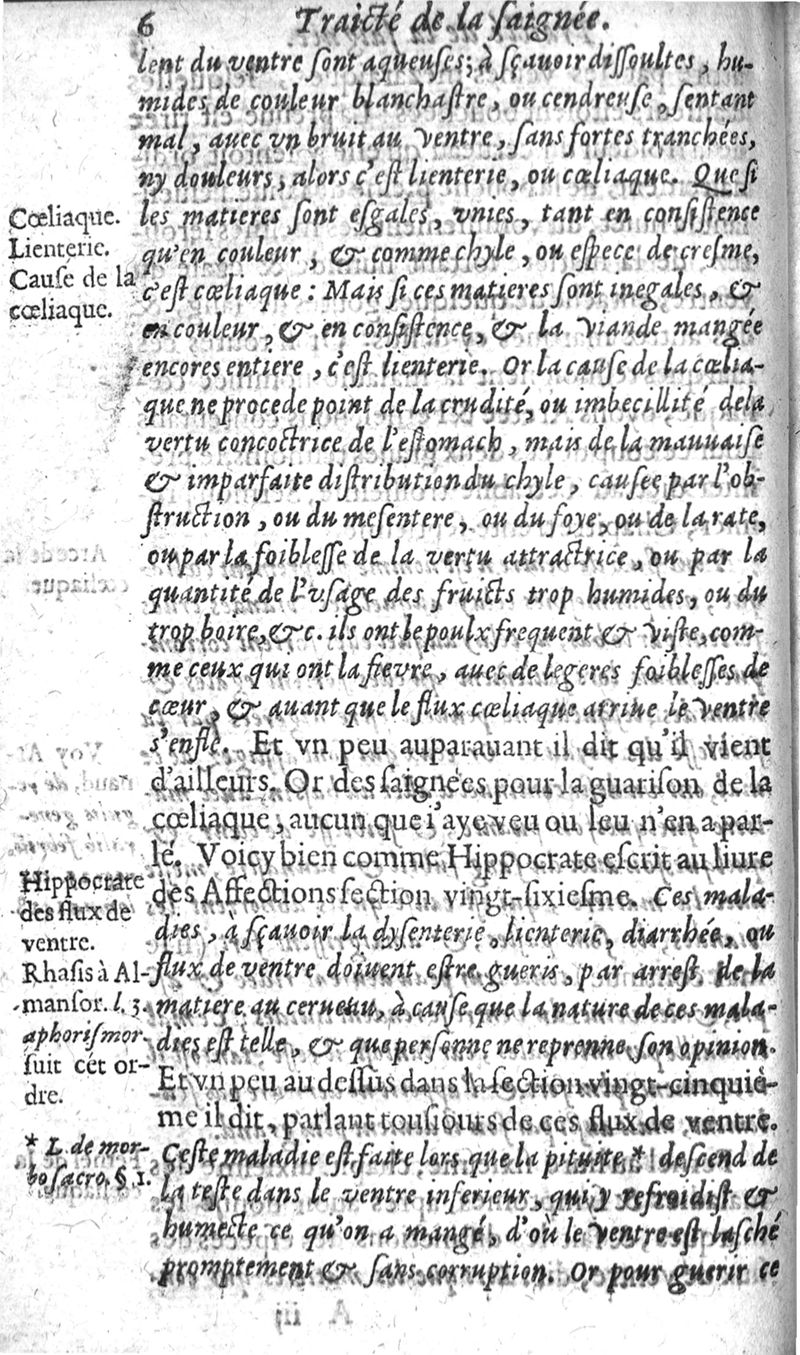 6 Traicté de la saignée.
lent du ventre sont aqueuses; à sçavoir dissoultes, hu-
mides de couleur blanchastre, ou cendreuse, sentant
mal, avec vn bruit au ventre, sans fortes tranchées,
ny douleurs, alors c'est lienterie, ou cœliaque. Que si
les matieres sont esgales, vnies, tant en consistence
qu'en couleur, & comme chyle, ou espece de cresme,
c'est cœliaque: Mais si ces matieres sont inegales, &
en couleur, & en consistence, & la viande mangée
encores entiere, c'est lienterie. Or la cause de la cœlia-
que ne procede point de la crudité, ou imbecillité dela
vertu concoctrice de l'estomach, mais de la mauuaise
& imparfaite distribution du chyle, causee par l'ob-
struction, ou du mesentere, ou du foye, ou de la rate,
ou par la foiblesse de la vertu attractrice, ou par la
quantité de l'vsage des fruicts trop humides, ou du
trop boire, &c. ils ont le poulx frequent & viste, com-
me ceux qui ont la fievre, avec de legeres foiblesses de
cœur, & auant que le flux cœliaque arriue le ventre
s'enfle. Et vn peu auparauant il dit qu'il vient
d'ailleurs. Or des saignées pour la guarison de la
cœliaque, aucun que i'aye veu ou leu n'en a par-
lé. Voicy bien comme Hippocrate escrit au liure
des Affections section vingt-sixiesme. Ces mala-
dies, à sçauoir la dysenterie, lienterie, diarrhée, ou
flux de ventre doiuent estre gueris, par arrest de la
matiere au cerueau, à cause que la nature de ces mala-
dies est telle, & que personne ne reprenne son opinion.
Et vn peu au dessus dans la section vingt-cinquié-
me il dit, parlant tousiours de ces flux de ventre.
Ceste maladie est faite lors que la pituite * descend de
la teste dans le ventre inferieur, qui y refroidist &
humecte ce qu'on a mangé, d'où le ventre est lasché
promptement & sans corruption. Or pour guerir ce
Cœliaque.
Lienterie.
Cause de la
cœliaque.
Hippocrate
des flux de
ventre.
Rhasis à Al-
mansor. l. 3.
aphorismor.
suit cét or-
dre.
* L. de mor-
bo sacro. § 1.